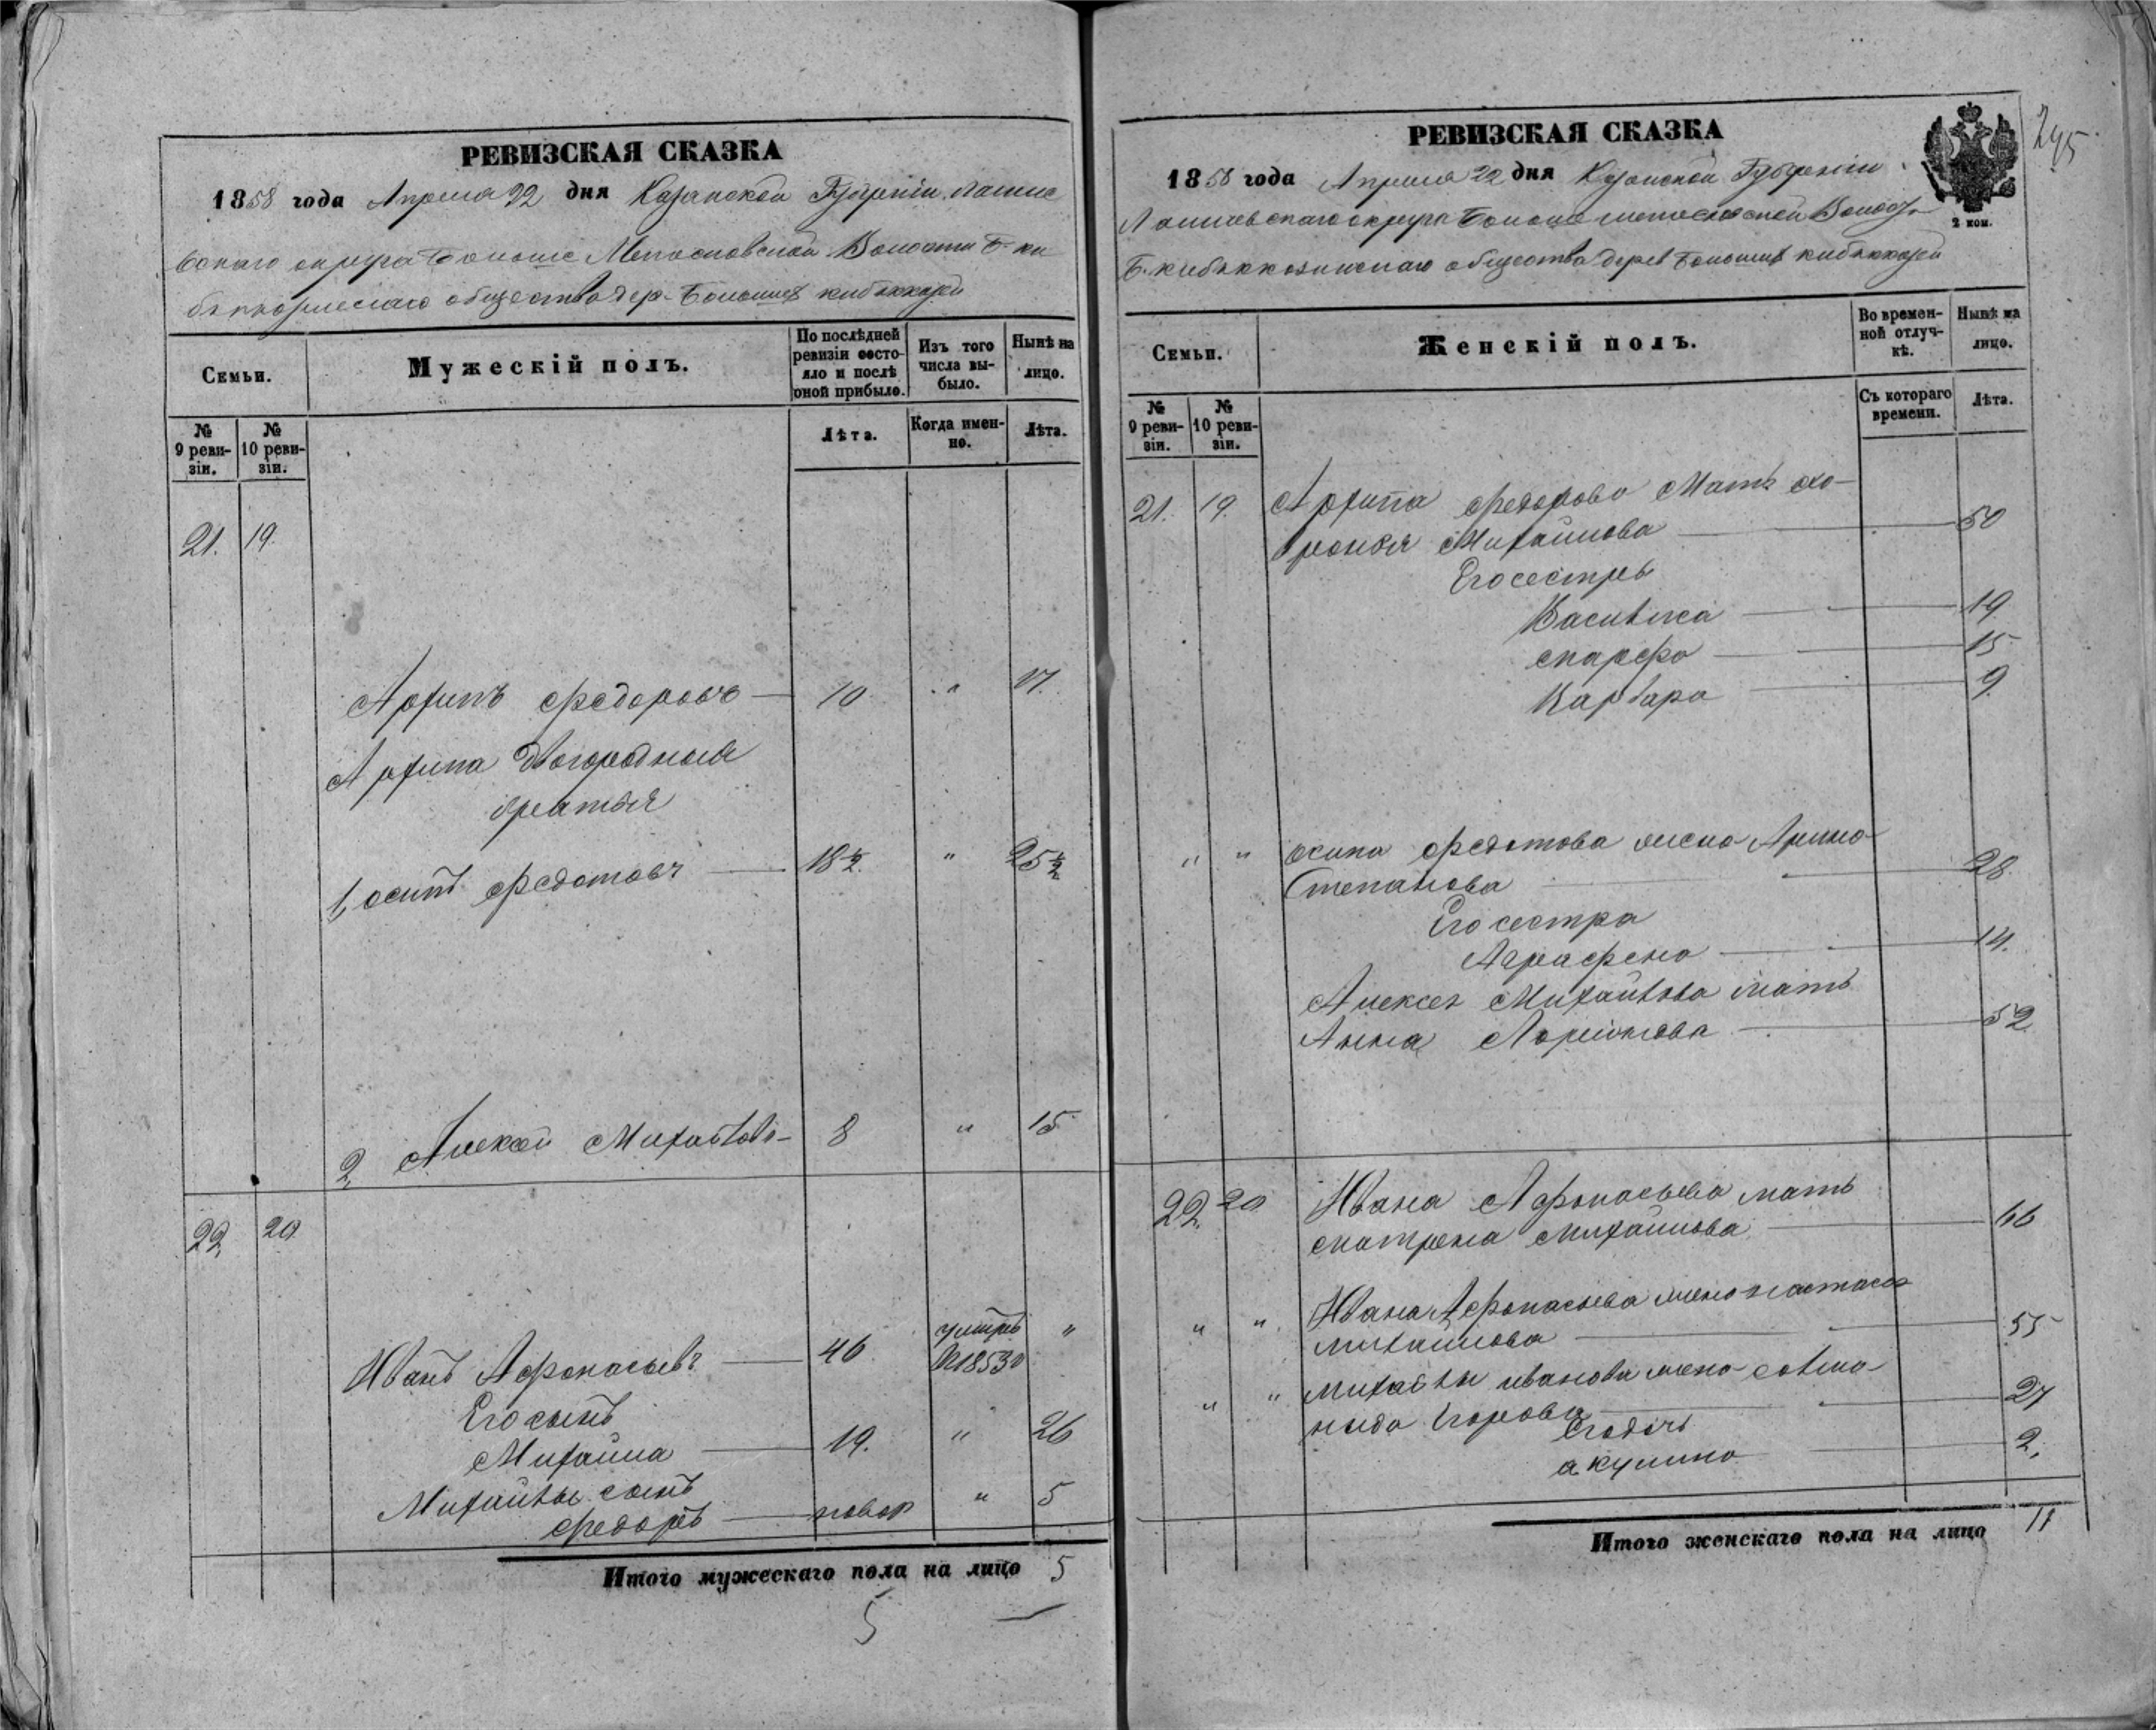 РЕВИЗСКАЯ СКАЗКА
1858 года Апреля 22 дня Казанской Губерніи Лаише
вскаго округа Больше Метесковской Волости Б. ки
общества дер. Большихъ кибяккозей
Семьи.
Мужескій полъ.
По послѣдней ревизіи состояло и послѣ оной прибыло.
Изъ того числа выбыло.
Нынѣ на лицо.
№ 9 ревизіи.
№ 10 ревизіи.
Лѣта.
Когда именно.
Лѣта.
21. 19.
Архипъ Федоровъ 10 " 17.
Архипа двоюродныя
братья
1, осипъ Федотовъ 18½ " 25½
2, Алексей Михайловъ 8 " 15
22, 20
Иванъ Афонасьевъ 46 умеръ 1853 "
Его сынъ
Михайла 19. " 26
Михайлы сынъ
Федоръ новор " 5
Итого мужескаго пола на лицо 5
5
РЕВИЗСКАЯ СКАЗКА
245
2 коп.
1858 года Апреля 22 дня Казанской Губерніи
Лаишевскаго округа Больше Метесковской Волости
Б. кибяккозинскаго общества дерев Большихъ кибяккозей
Семьи.
Женскій полъ.
Во временной отлучкѣ.
Нынѣ на лицо.
№ 9 ревизіи.
№ 10 ревизіи.
Съ котораго времени.
Лѣта.
21. 19. Архипа Федорова Мать хо-
вронья Михайлова 50
Его сестры
Василиса 19
марфа 15
Варвара 9
" " осипа Федотова жена Арина
Степанова 28.
Его сестра
Аграфена 14.
Алексея Михайлова мать
Анна Ларионова 52
22, 20 Ивана Афонасьева мать
матрена михайлова 66
" " Ивана Афонасьева жена настасья
михайлова 55
" " михайлы иванова жена соломо-
нида Егорова 27
Его дочь
акулина 2,
Итого женскаго пола на лицо 11